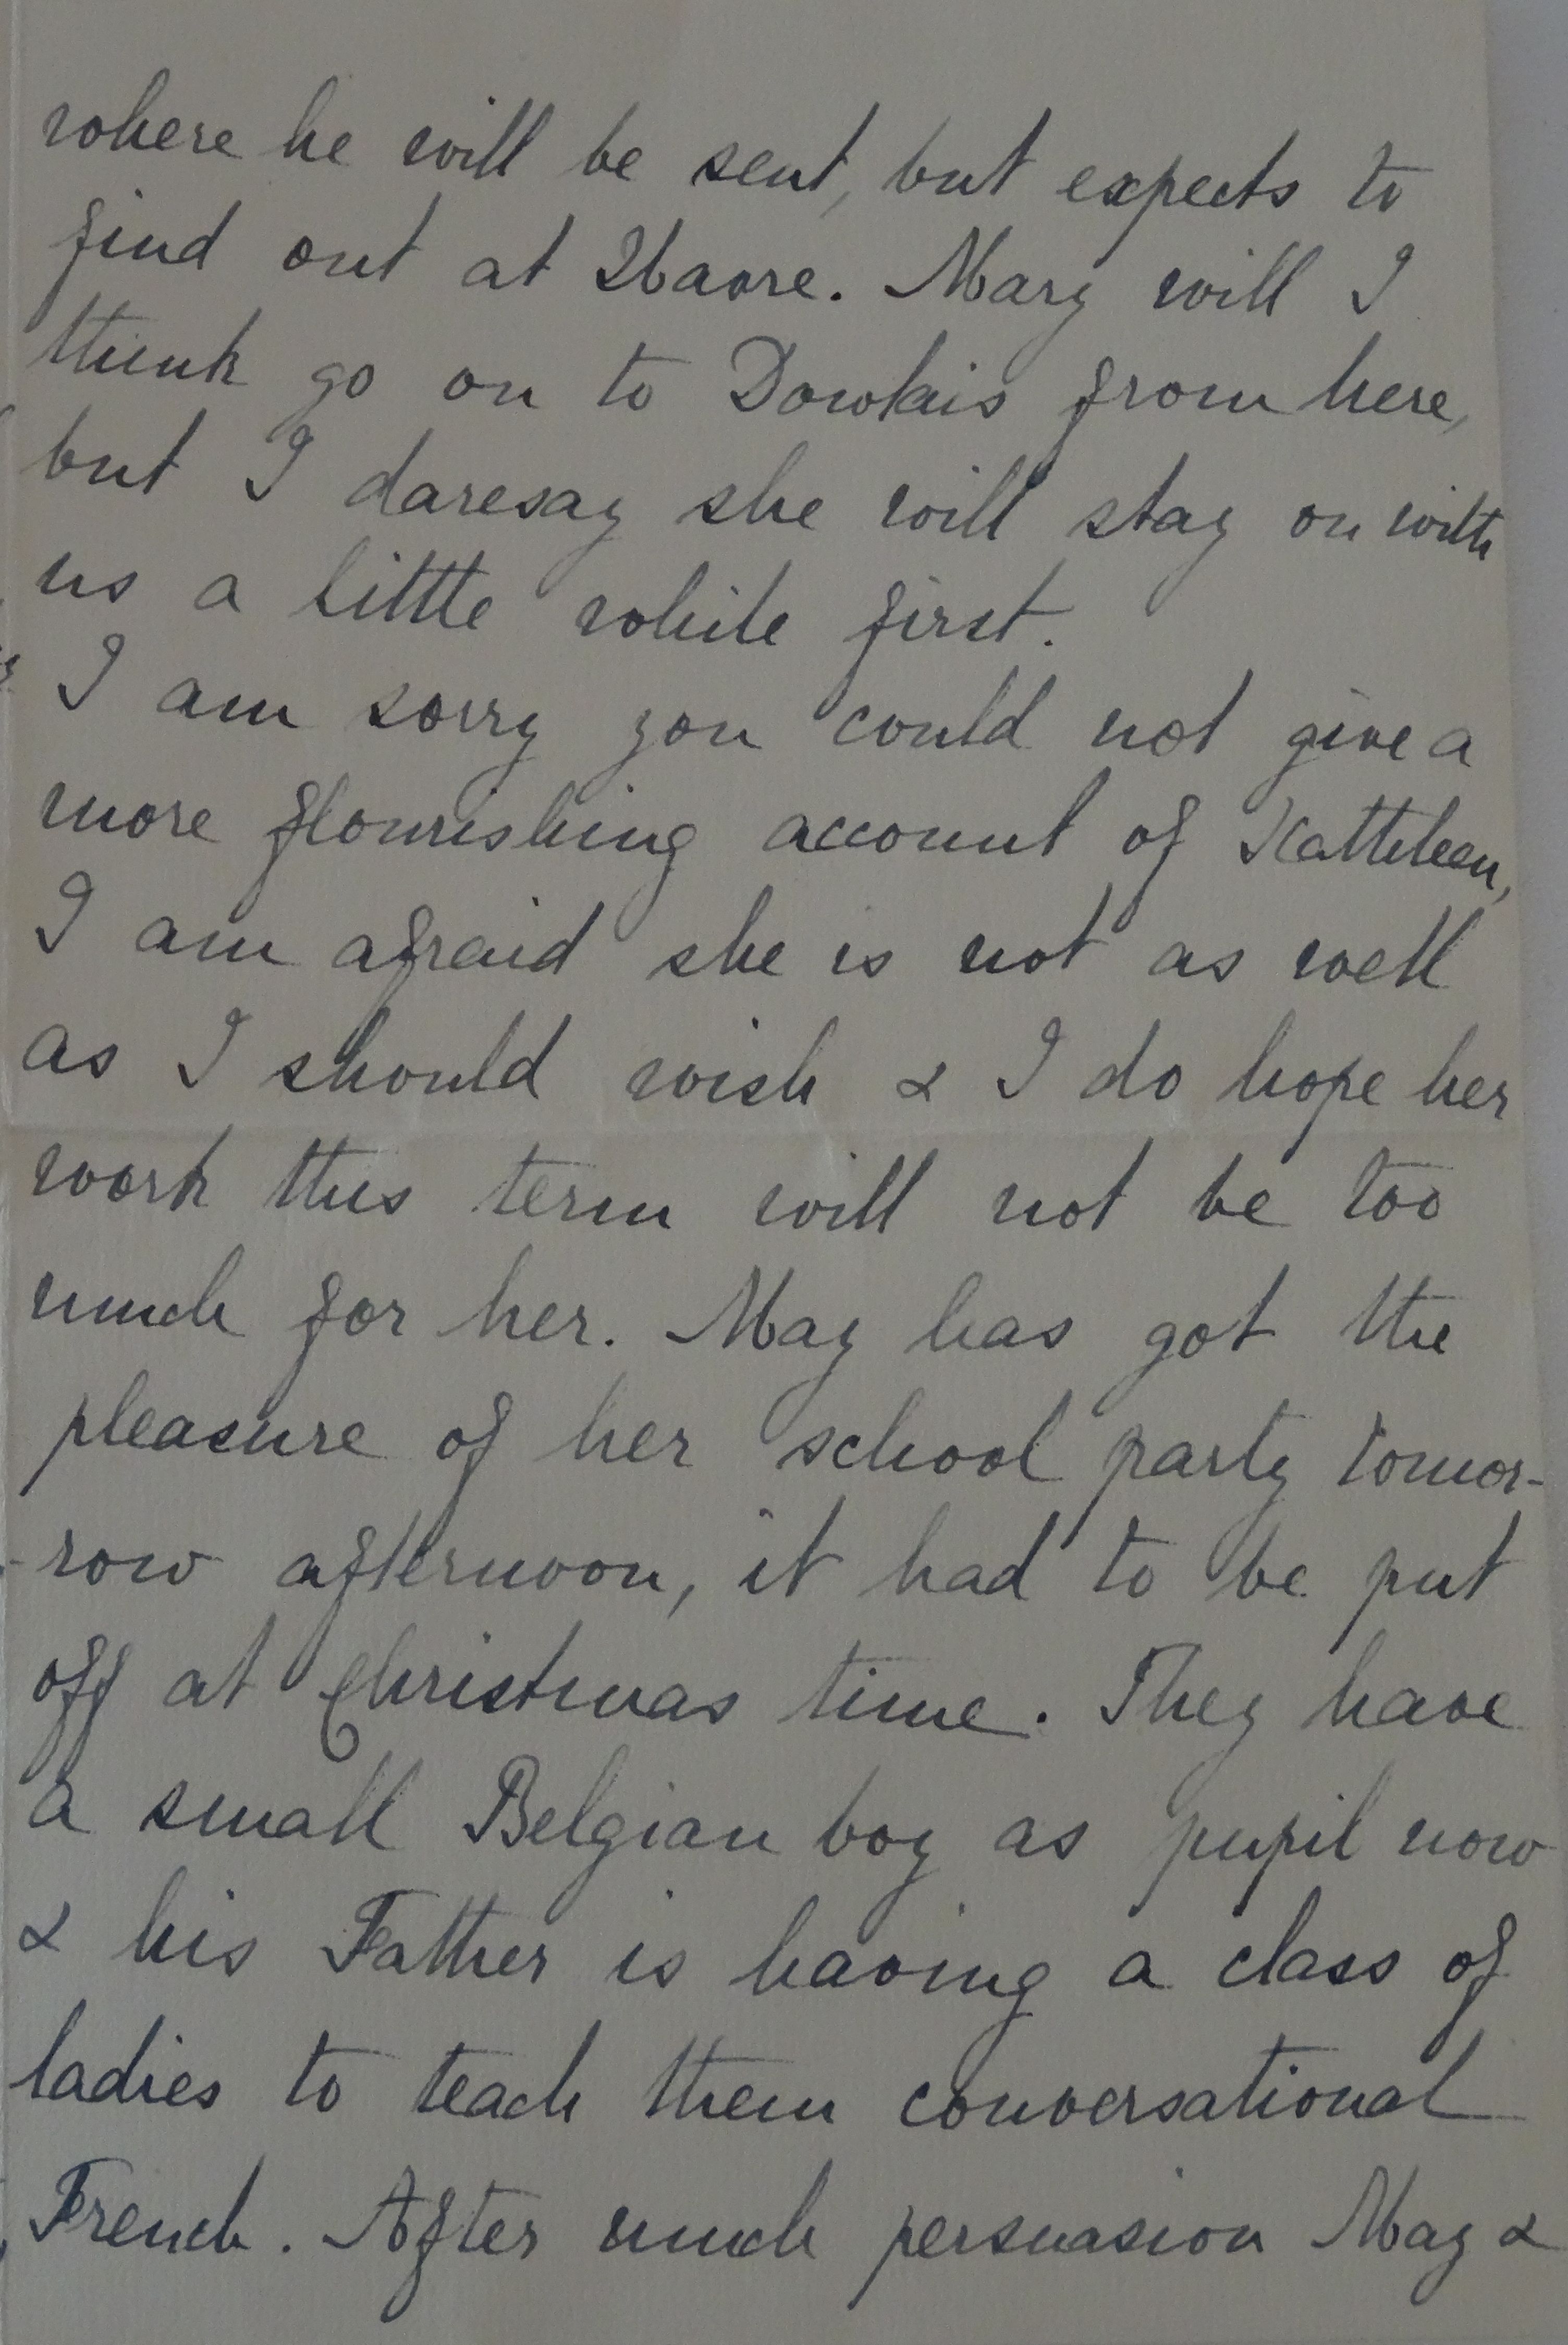 where he will be sent, but expects to
find out at Havre. Mary will I
think go on to Dowlais from here,
but I daresay she will stay on with
us a little while first.
I am sorry you could not give a
more flourishing account of Kathleen,
I am afraid she is not as well
as I should wish & I do hope her
work this term will not be too
much for her. May has got the
pleasure of her school party tomor-
-row afternoon, it had to be put
off at Christmas time. They have
a small Belgian boy as pupil now
& his Father is having a class of
ladies to teach them conversational
French. After much persuasion May &